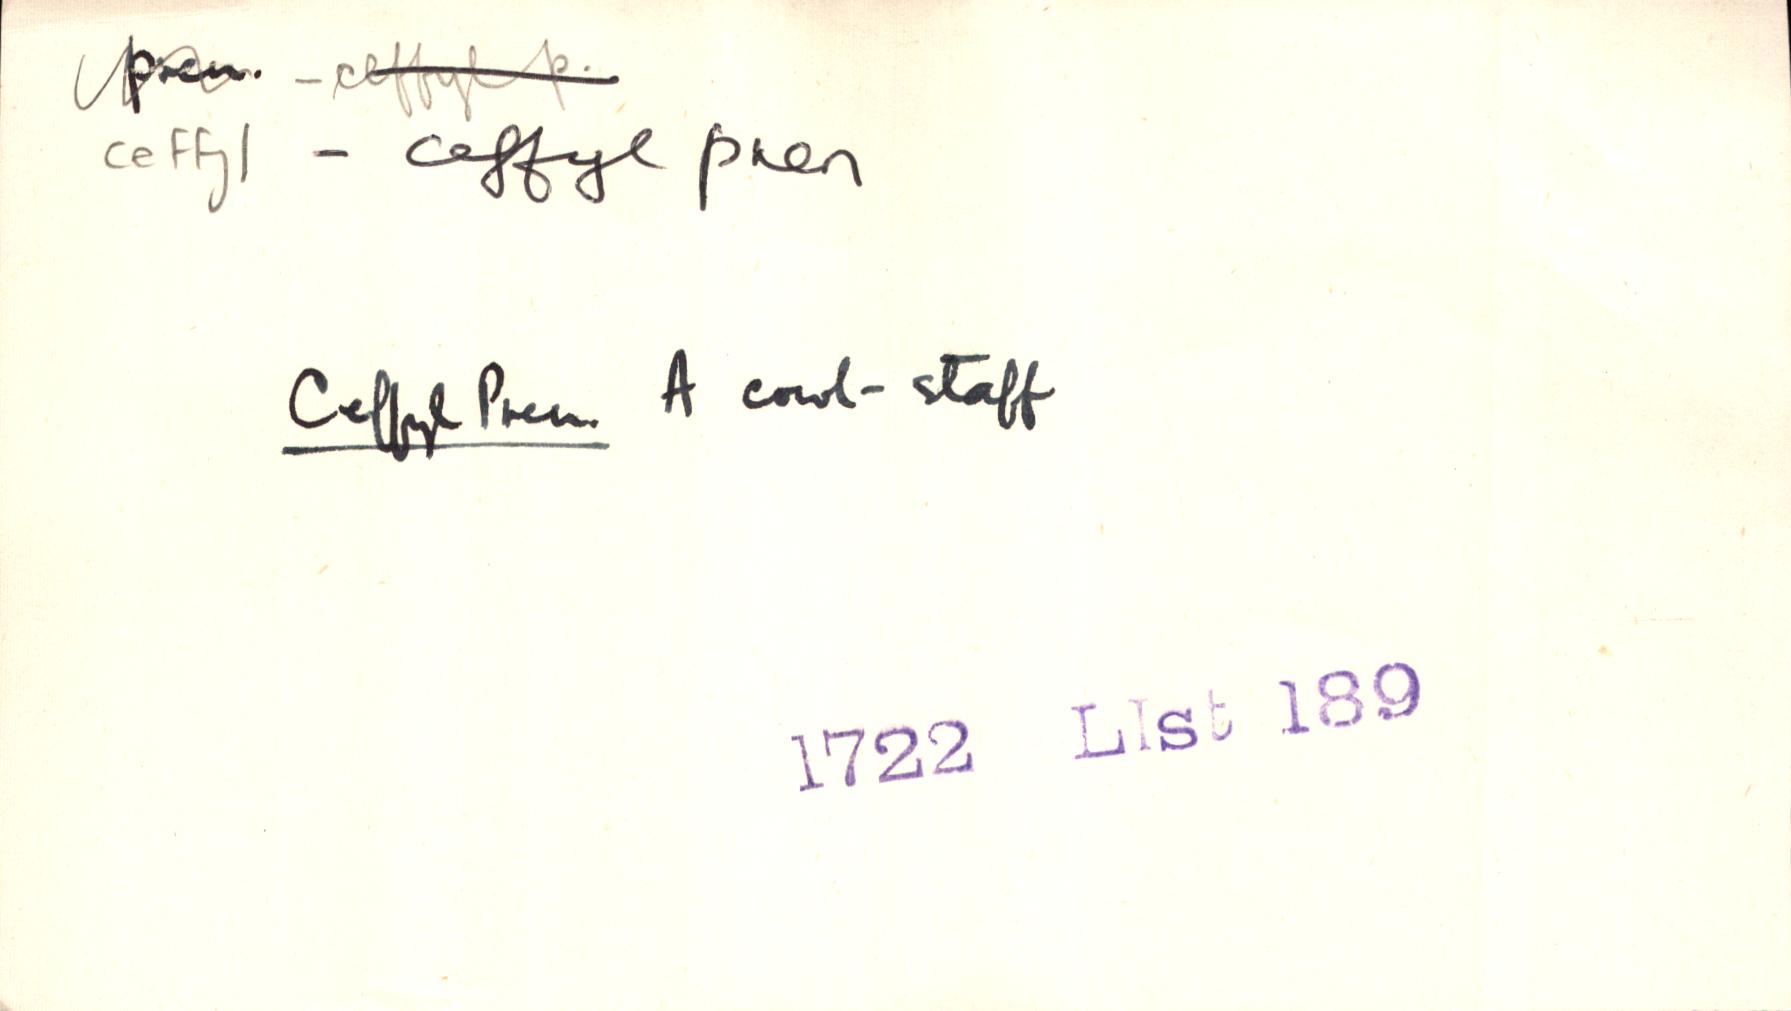 pren. - ceffyl p.
ceffyl - ceffyl pren
Ceffyl Pren. A cowl-staff
1722 LIst 189